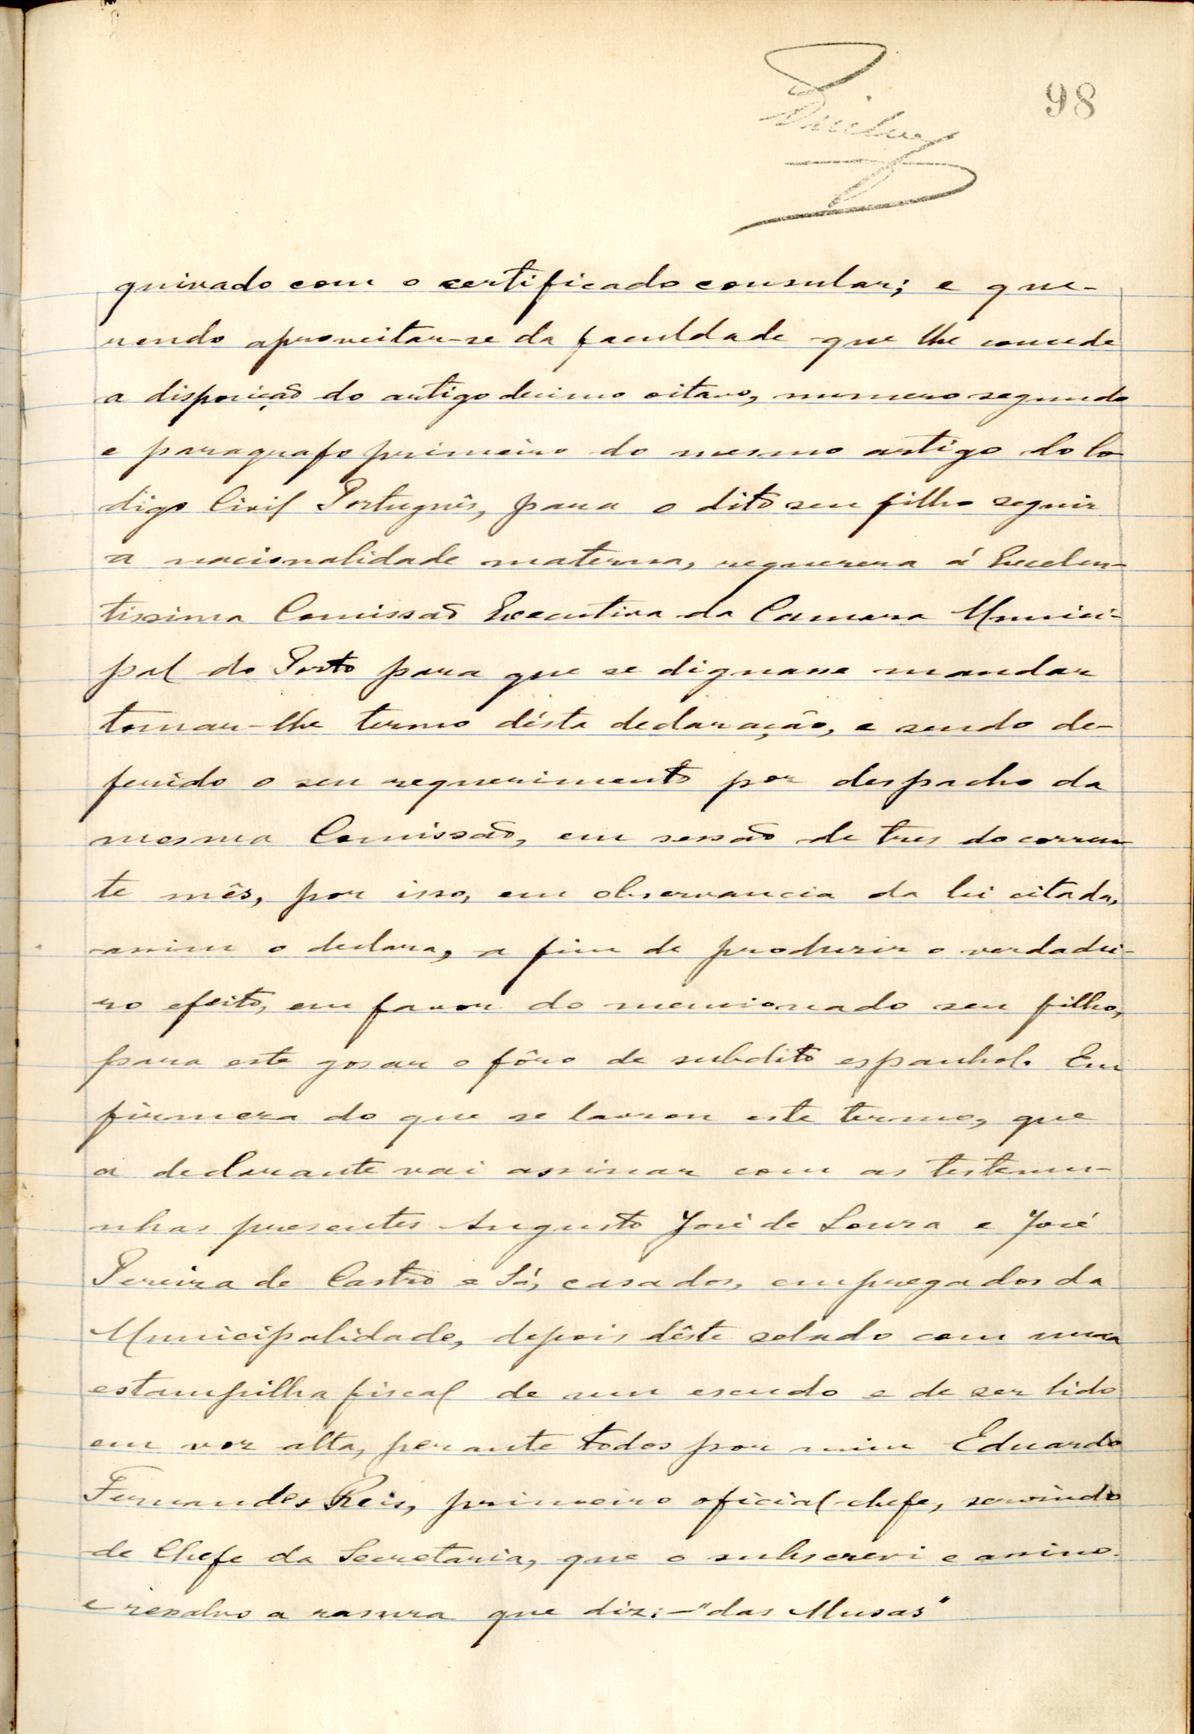 98
quivado com o certificado consular; e que-
rendo aproveitar-se da faculdade que lhe concede
a disposição do artigo decimo oitavo, numero segundo
e paragrafo primeiro do mesmo artigo do Co
digo Civil Português, para o dito seu filho seguir
a nacionalidade materna, requerera á Excelen-
tissima Comissão Executiva da Camara Munici-
pal do Porto para que se dignasse mandar
tomar-lhe termo désta declaração, e sendo de-
ferido o seu requerimento por despacho da
mesma Comissão, em sessão de tres do corren-
te mês, por isso, em observancia da lei citada,
assim o declara, a fim de produzir o verdadei-
ro efeito, em favor do mencionado seu filho,
para este gosar o fôro de subdito espanhol. Em
firmeza do que se lavrou este termo, que
a declarante vai assinar com as testemu-
nhas presentes Augusto José de Souza e José
Pereira de Castro e Sá, casados, empregados da
Municipalidade, depois dêste selado com uma
estampilha fiscal de um escudo e de ser lido
em voz alta, perante todos por mim Eduardo
Fernandes Reis, primeiro oficial-chefe, servindo
de Chefe da Secretaria, que o subscrevi e assino.
e resalvo a rasura que diz:-"das Musas"